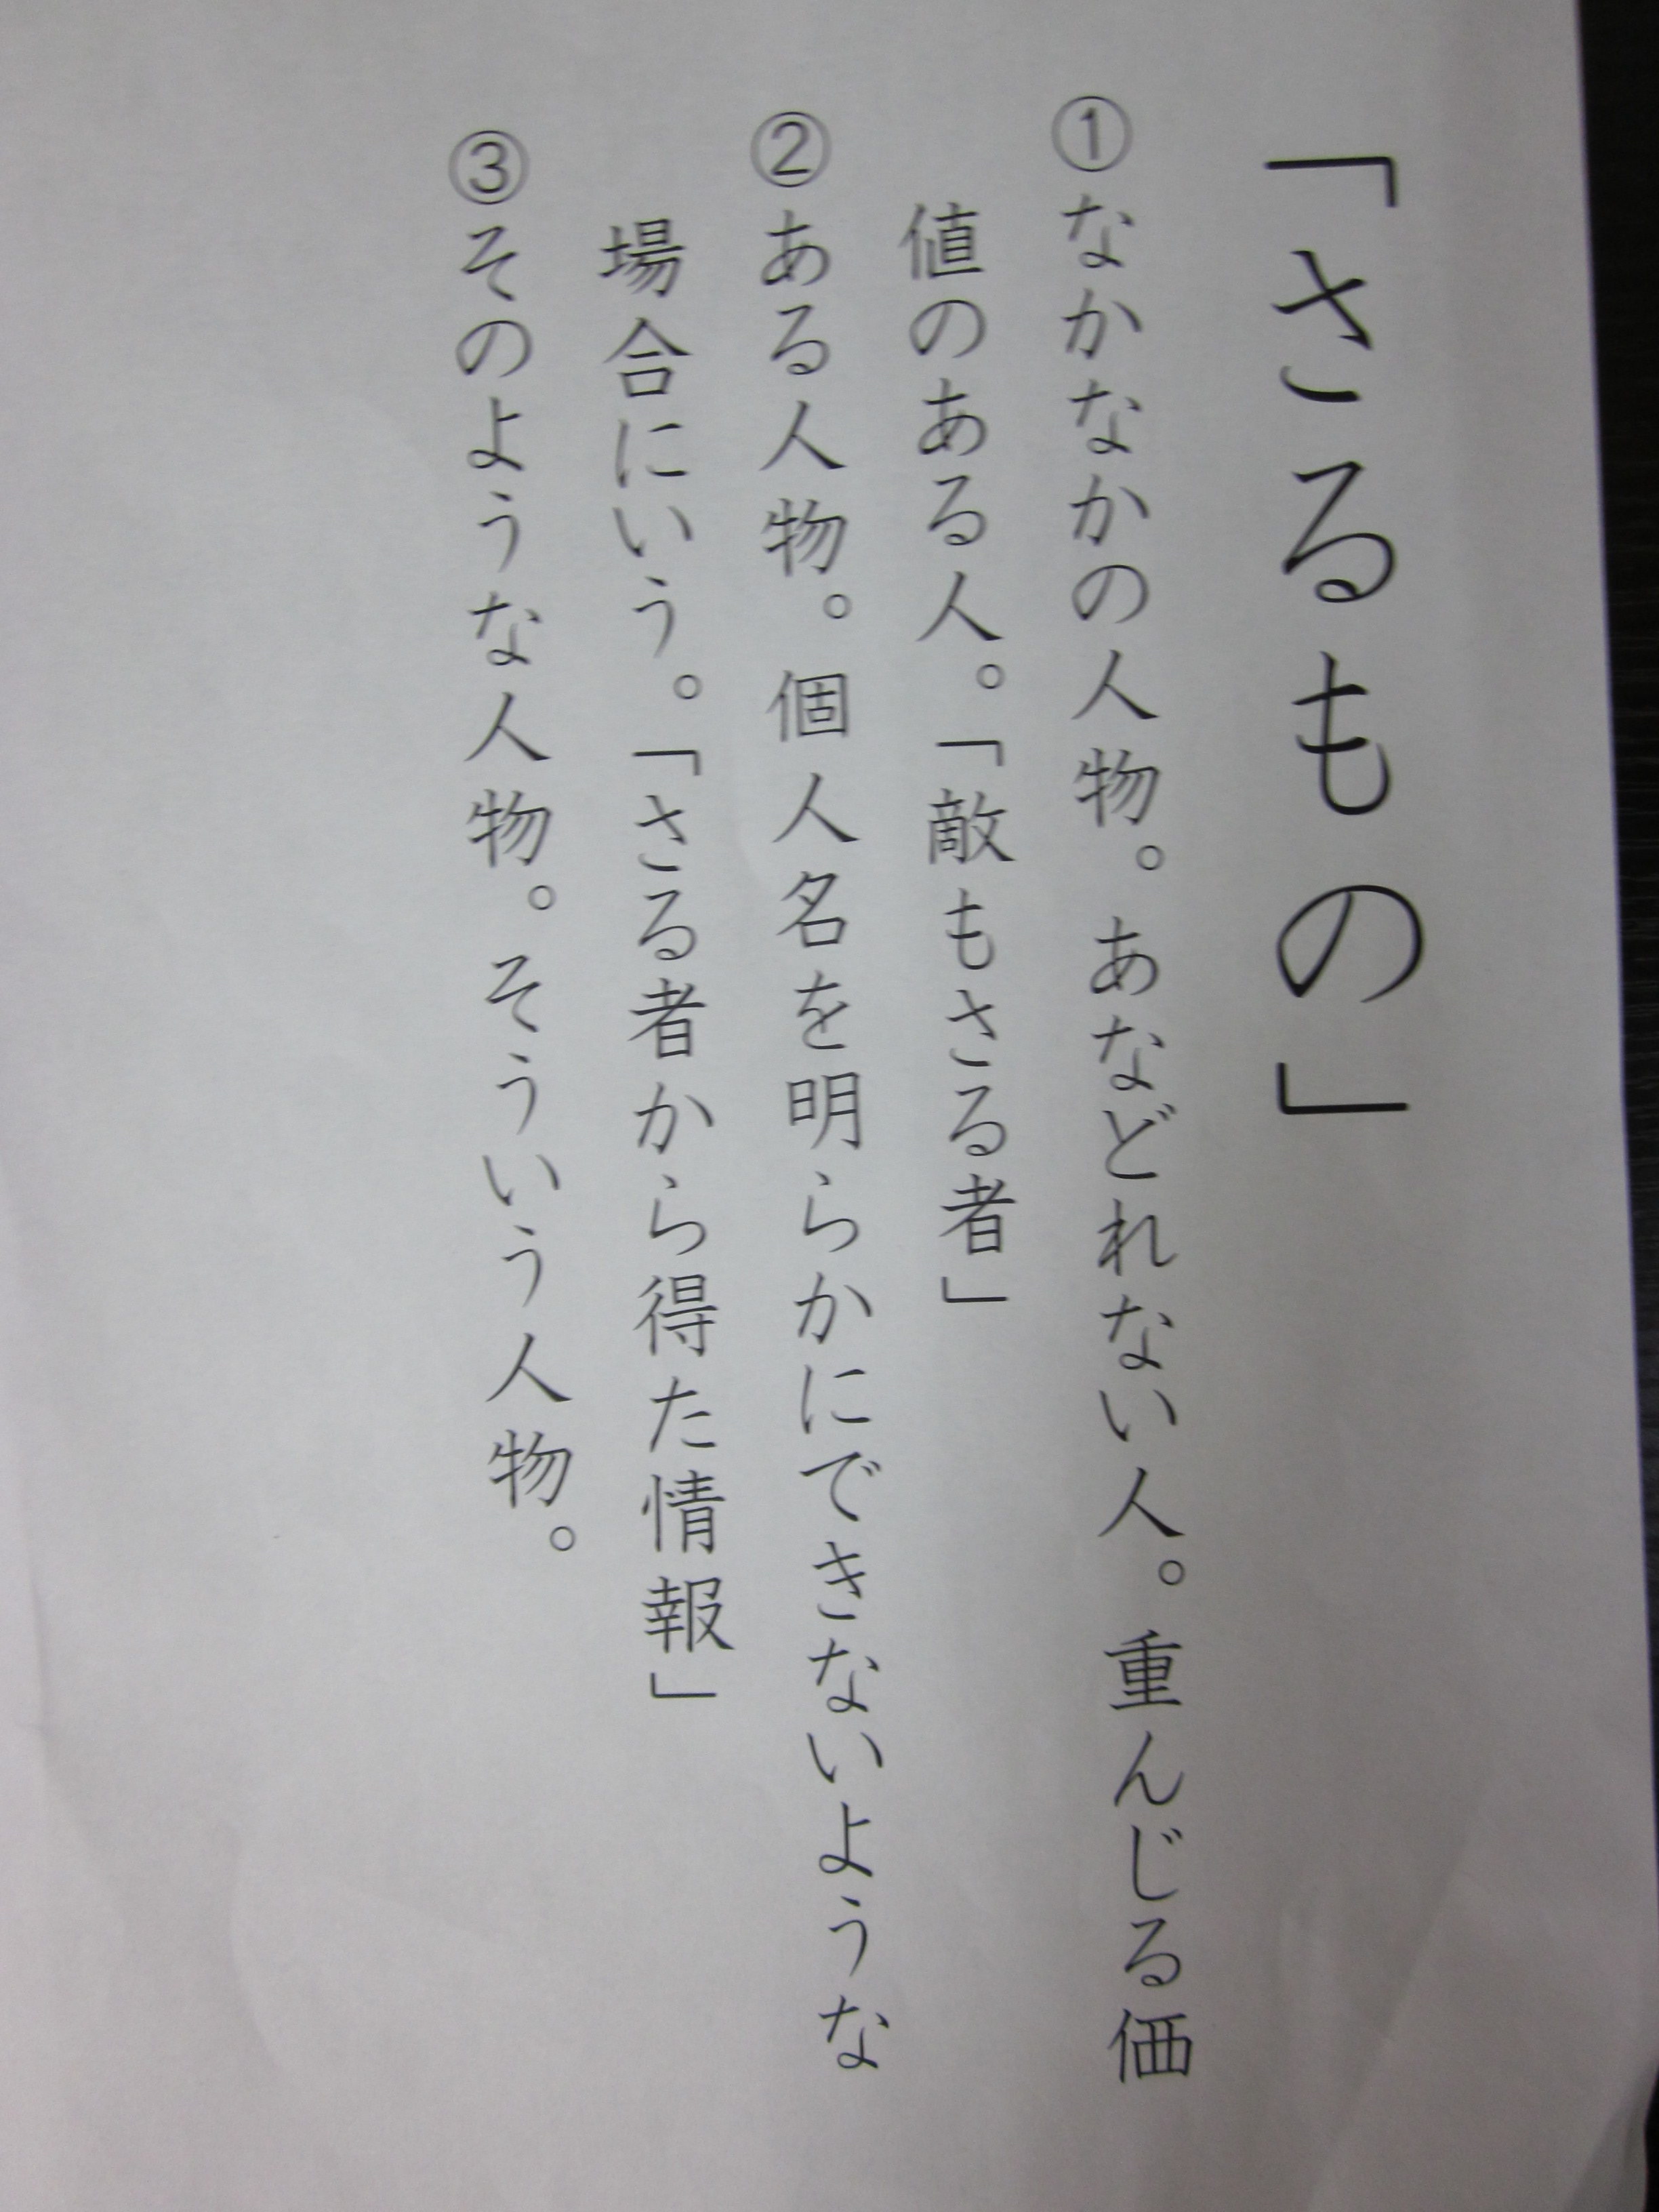 「さるもの」
①なかなかの人物。あなどれない人。重んじる価
値のある人。「敵もさる者」
②ある人物。個人名を明らかにできないような
場合にいう。「さる者から得た情報」
③そのような人物。そういう人物。